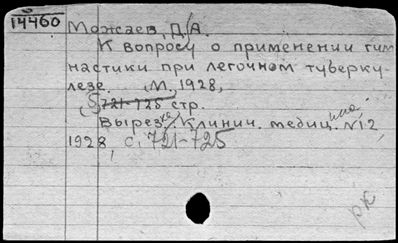 14460
Можаев, Д.А.
К вопросу о применении гим
настики при легочном туберку-
лезе. М., 1928,
(5) 721-725 стр.
Вырезка. Клинич. медицина. №12
1928, с. 721-725
рк